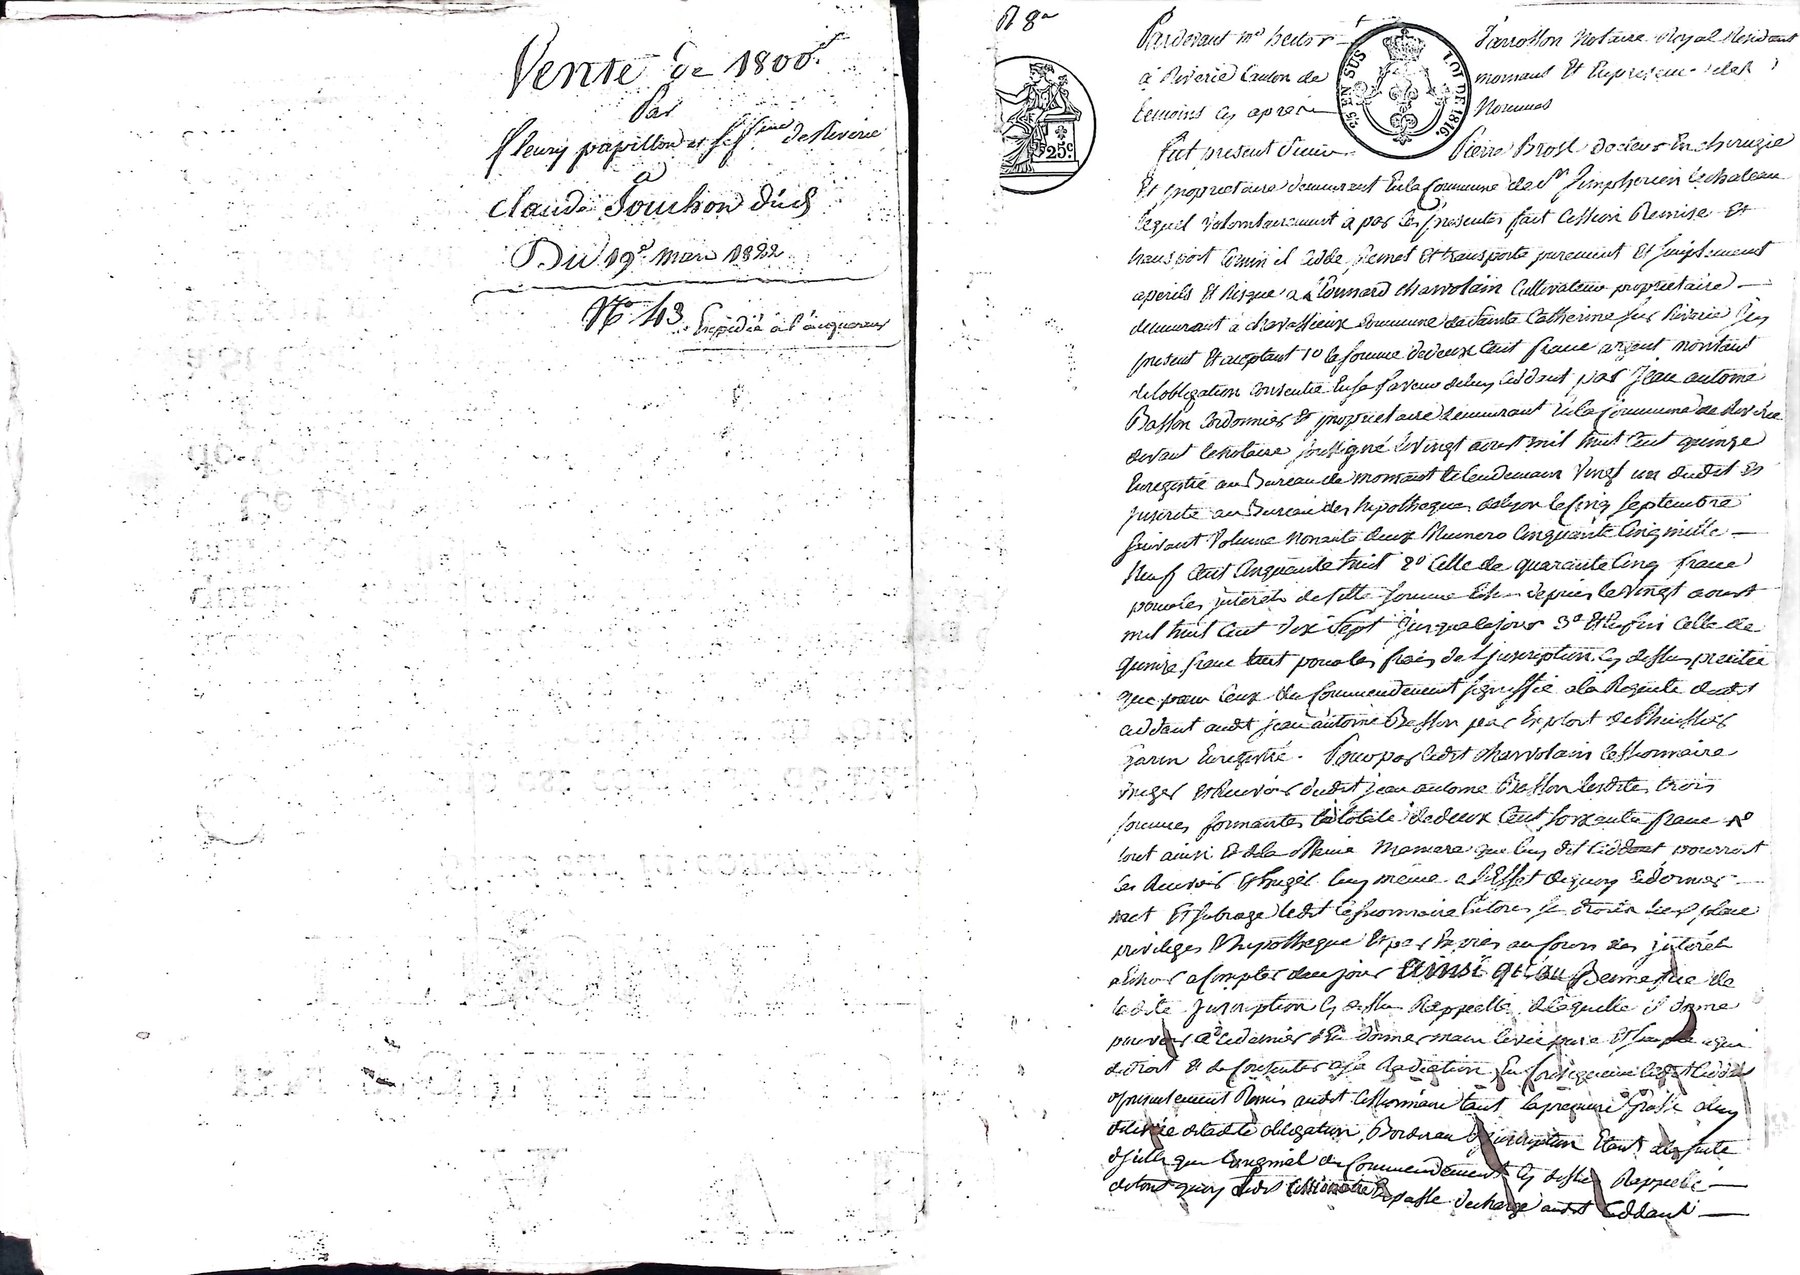 Vente de 1800f
Par
fleury papillon et sa f.me de Riverie
a
claude Souchon dud.
Du 19e mars 1822
N° 43 Expédié a l'acquereur
N 8a
25c
25 EN SUS
LOI DE 1816.
Pardevant me hector D'arrosson Notaire Royal Residant
à Riverie Canton de mornant Et En presence des
temoins cy après Nommes
fut present Sieur Pierre Brost docteur En chirurgie
Et proprietaire demeurant En la Commune de St Simphorien le chateau
lequel volontairement a par ces presentes fait Cession Remise Et
transport Comm'il Cedde Remet Et transporte purement Et Simplement
a perils Et Risque a Leonnard charvolain Cultivateur proprietaire
demeurant a chavassieux Commune de Sainte Catherine sur Riverie Icy
present Et acceptant 1° la somme de deux Cent francs argent montant
de lobligation consentie En sa faveur de luy Ceddant par Jean antoine
Basson Cordonnier Et proprietaire demeurant En la Commune de Riverie
devant le Notaire soussigné le vingt aoust mil huit Cent quinze
Enregistré au Bureau de mornant le lendemain vingt un dudit Et
Inscrite au Bureau des hypotheques de lyon le Cinq septembre
suivant Volume nonante deux Numero Cinquante Cinq mille
Neuf Cent Cinquante huit 2° Celle de quarante Cinq francs
pour les interets de ditte somme Echus depuis le vingt aoust
mil huit Cent dix sept Jusqua ce jour 3° Et Enfin Celle de
quinze francs tant pour les frais de l'Inscription cy dessus precitée
que pour Ceux du Commendement signiffié a la Requete dudit
Ceddant audit jean antoine Basson par Exploit de l'huissier
Garin Enregistré. Pour par ledit Charvolain Cessionnaire
Exiger et Recevoir dudit jean antoine Basson lesdites trois
sommes formantes la totale de deux Cent soixante francs
tout ainsi Et de la Meme Maniere que luy dit Ceddant pourroit
les Recevoir Et Exiger luy même a l'Effet de quoy Ce dernier
met Et subroge ledit Cessionnaire En tous ses droits lieux place
privileges Et hypotheque Et par Exprès au Cours des interets
a Echoir a Compter de ce jour Et insi qu'au Benefice de
ladite Inscription cy dessus Rappellée de laquelle il donne
pouvoir a Ce dernier d'En donner main levée pure Et simple a qui
de droit Et de Consentir a sa Radiation En Consequence ledit Ceddant
a presentement Remis audit Cessionnaire tant la premiere Grosse a luy
delivrée de ladite obligation, Bordereau d'Inscription Etant a la suite
d'icelle que l'original du Commendement cy dessus Rappellé
de tout quoy ledit Cessionnaire En passe decharge audit Ceddant